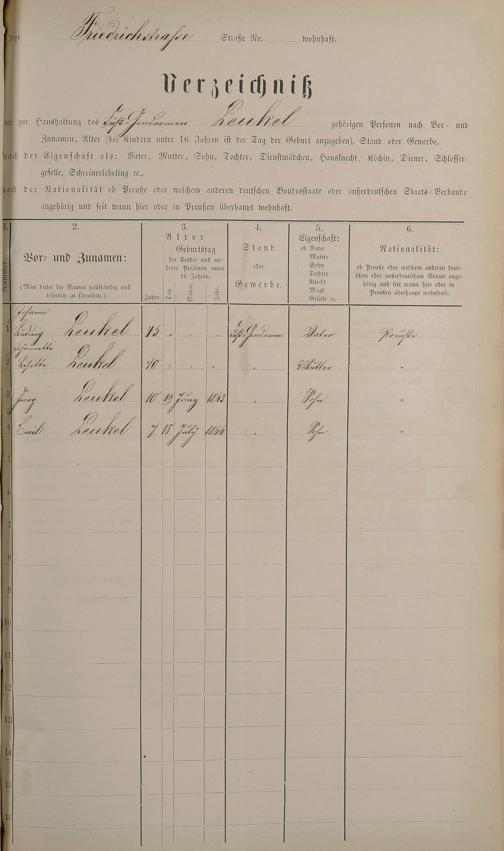 Friedrichstraße Straße No. wohnhaft.
Verzeichniß
der zur Haushaltung des Fuß-Gendarmen Leukel gehörigen Personen nach Vor- und
Zunamen, Alter (bei Kindern unter 16 Jahren ist der Tag der Geburt anzugeben), Stand oder Gewerbe,
nach der Eigenschaft als: Vater, Mutter, Sohn, Tochter, Dienstmädchen, Hausknecht, Köchin, Diener, Schlosser-
geselle, Schreinerlehrling ꝛc.,
nach der Nationalität ob Preuße oder welchem anderen deutschen Bundesstaate oder außerdeutschen Staats-Verbande
angehörig und seit wann hier oder in Preußen überhaupt wohnhaft.
1. 2. 3. 4. 5. 6.
Nummer.
Vor- und Zunamen:
(Man bittet die Namen vollständig und
leserlich zu schreiben.)
Alter
Geburtstag
der Kinder und an-
derer Personen unter
16 Jahren.
Jahre. Tag. Monat. Jahr.
Stand
oder
Gewerbe.
Eigenschaft:
ob Vater
Mutter
Sohn
Tochter
Knecht
Magd
Geselle ꝛc.
Nationalität:
ob Preuße oder welchem anderen deut-
schen oder außerdeutschen Staate ange-
hörig und seit wann hier oder in
Preußen überhaupt wohnhaft.
Johann
1 Ludwig Leukel 45 Fuß-Gendarm Vater Preuße
Johannette
2 Lisette Leukel 40 Mutter "
3 Leukel 10 19 Juny Sohn "
4 Emil Leukel 7 18 July Sohn "
5
6
7
8
9
10
11
12
13
14
15
16